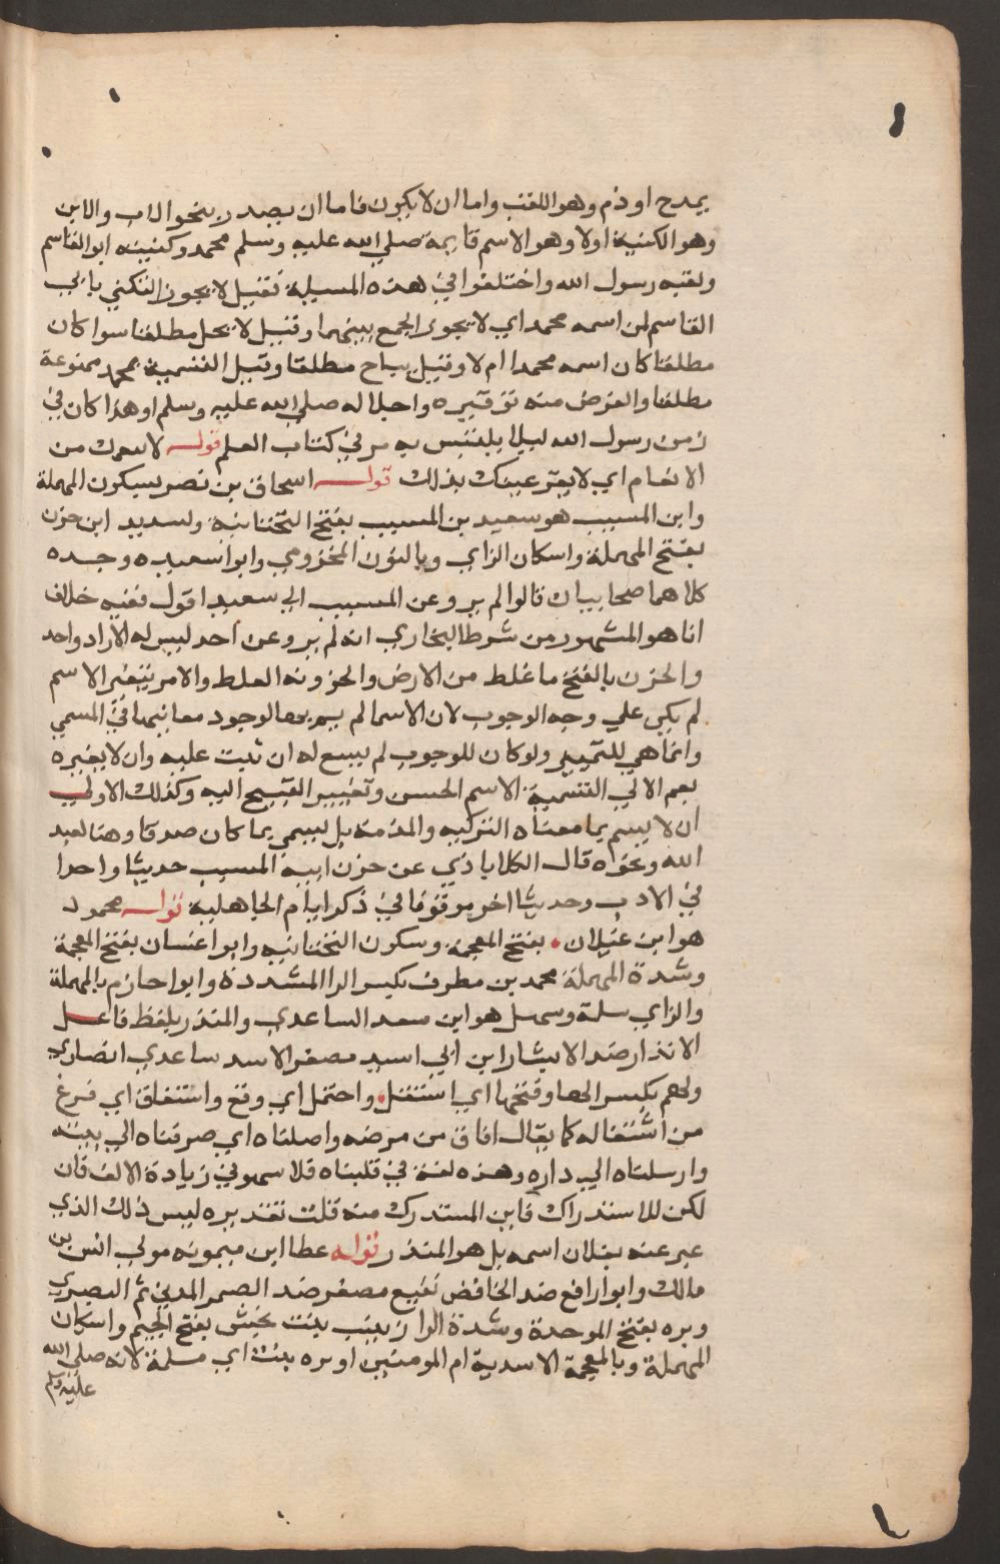 بمدح او ذم وهو اللقب واما ان لا يكون فاما ان يصدر بنحو الاب والابن
وهو الكنية اولا وهو الاسم فاسمه صلي الله عليه وسلم محمد وكنيته ابو القاسم
ولقبه رسول الله واختلفوا في هذه المسيلة فقيل لا يجوز التكني بابي
القاسم لمن اسمه محمد اي لا يجوز الجمع بينهما وقيل لا يحل مطلقا سوا كان
مطلقا كان اسمه محمدا ام لا وقيل يباح مطلقا وقيل التسمية بمحمد ممنوعة
مطلقا والغرض منه توقيره واجلاله صلي الله عليه وسلم او هذا كان في
زمن رسول الله ليلا يلتبس به مر في كتاب العلم قوله لا ينعمك من
الانعام اي لا يقر عينك بذلك قوله اسحاق بن نصر بسكون المهملة
وابن المسيب هو سعيد بن المسيب بفتح التحتانيه وتشديد ابن حزن
بفتح المهملة واسكان الزاي وبالنون المخزومي وابوا سعيد وجده
كلاهما صحابيان قالوا لم يرو عن المسيب الي سعيد اقول ففيه خلاف
انا هو المشهور من شرط البخاري انه لم يرو عن احد ليس له الا راو واحد
والحزن بالفتح ما غلط من الارض والحزونه الغلط والامر بتغير الاسم
لم يكن علي وجه الوجوب لان الاسما لم يسم بها لوجود معانيها في المسمي
وانما هي للتمييز ولو كان للوجوب لم يسع له ان يثبت عليه وان لا يغيره
نعم الاولي التسمية الاسم الحسن وتغيير القبيح اليه وكذلك الاولي
ان لا يسم بما معناه التزكيه والمذمة بل يسمي بما كان صدقا وحقا لعبد
الله ونحوه قال الكلاباذي عن حزن ابيه المسيب حديثا واحدا
في الادب وحديثا اخر موقوفا في ذكر ايام الجاهلية قوله محمود
هو ابن غيلان بفتح المعجمة وسكون التحتانيه وابوا غسان بفتح المعجمة
وشدة المهملة محمد بن مطرف بكسر الرا المشددة وابوا حازم بالمهملة
والزاي سلمة وسهل هو ابن سعد الساعدي والمنذر بلفظ فاعل
الانذار ضد الابشار ابن ابي اسيد مصغر الاسد ساعدي انصاري
ولهم بكسر الها وفتحها اي اشتغل واحتمل اي وقع واستفاق اي فرغ
من اشتغاله كما يقال افاق من مرضه واصلناه اي صرفناه الي بيته
وارسلناه الي داره وهذه لغة في قلبناه فلا سهو في زيادة الالف فان
لكن للاستدراك فاين المستدرك منه قلت تقديره ليس ذلك الذي
عبر عنه بفلان اسمه بل هو المنذر قوله عطا ابن ميمونه مولي انس بن
مالك وابوا رافع ضد الخافض نفيع مصغر ضد الضر المدني ثم البصري
وبره بفتح الموحدة وشدة الرا زينب بنت جحش بفتح الجيم واسكان
المهملة وبالمعجمة الاسدية ام المومنين او بره بنت ابي سلمة لانه صلي الله
عليه وسلم